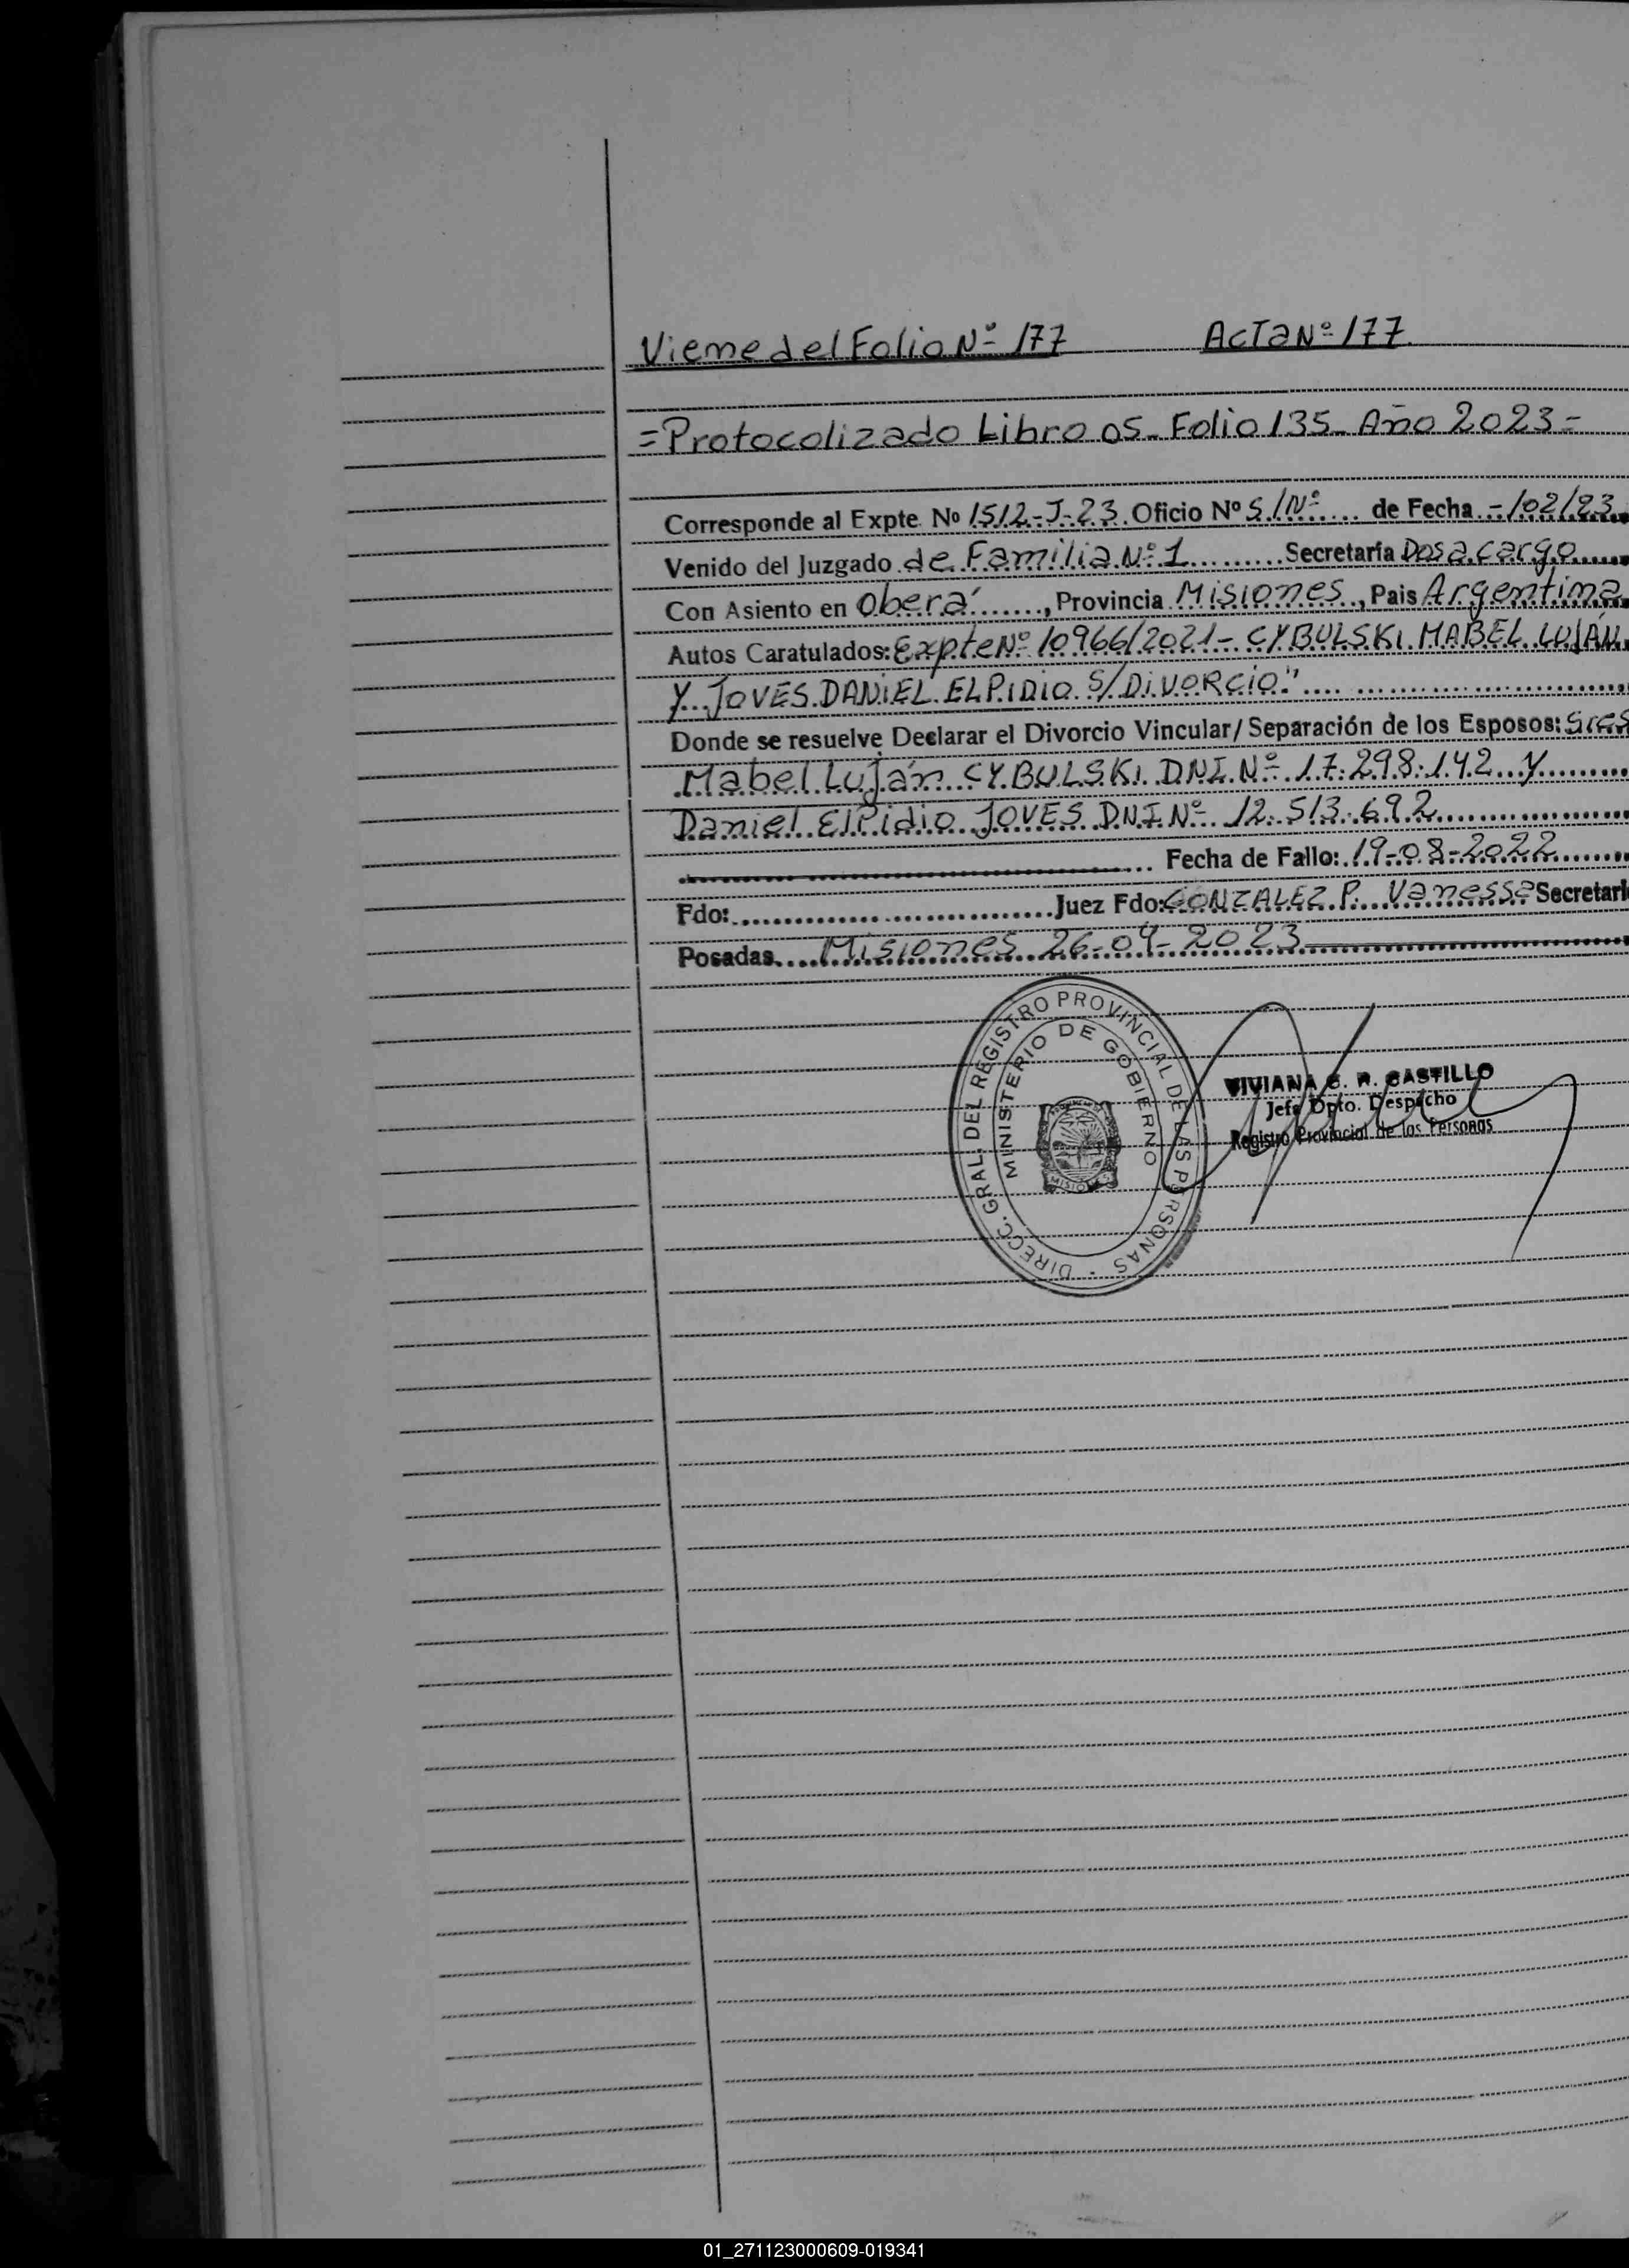 Viene del Folio Nº 177 Acta Nº 177
=Protocolizado Libro 05- Folio 135- Año 2023=
Corresponde al Expte. Nº 1512-J-23. Oficio Nº S/Nº.... de Fecha -/02/23
Venido del Juzgado de Familia Nº 1 ......... Secretaría Dos a cargo
Con Asiento en Oberá ......., Provincia Misiones, Pais Argentina
Autos Caratulados: Expte Nº 10966/2021- CYBULSKI MABEL LUJÁN
Y JOVES DANIEL ELPIDIO S/DIVORCIO"
Donde se resuelve Declarar el Divorcio Vincular/Separación de los Esposos: Sres
Mabel Luján CYBULSKI DNI Nº 17.298.142 y
Daniel Elpidio JOVES DNI Nº 12.513.692
Fecha de Fallo: 19-08-2022
Fdo: ............................ Juez Fdo: GONZALEZ P. Vanessa Secretari
Posadas.... Misiones 26-04-2023
DIRECC. GRAL. DEL REGISTRO PROVINCIAL DE LAS PERSONAS
MINISTERIO DE GOBIERNO
MISIONES
VIVIANA G. R. CASTILLO
Jefe Dpto. Despacho
Registro Provincial de las Personas
01_271123000609-019341